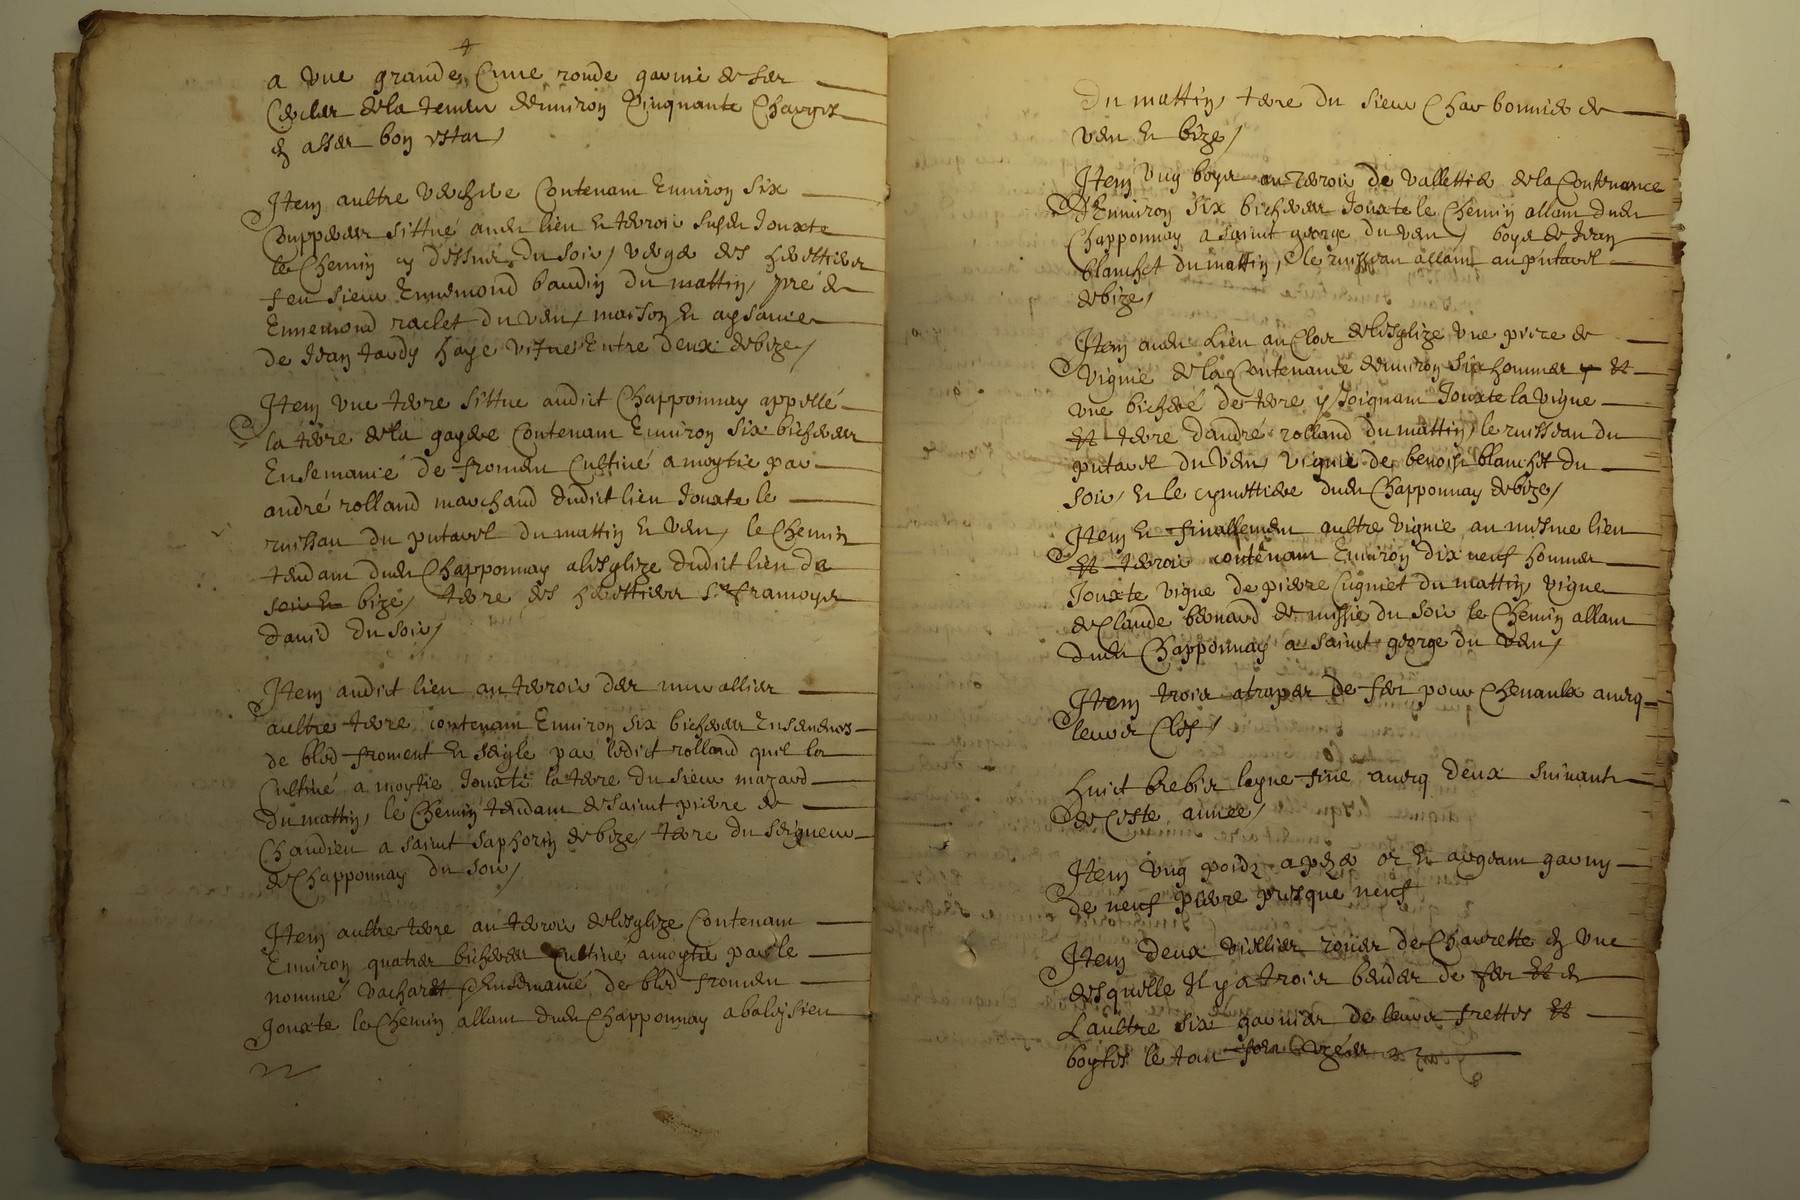 a une grande Cuve ronde garnie de ser
Cercler de la teneur denviron Cinquante Charges
en asser bon estat /
Item aultre verchere Contenant Environ six
Couppeder sittué audit lieu et terroir susdit Jouxte
le Chemin cy dessus du soir, verge des heretiers
feu sieur Ennemond baudin du mattin, pré de
Ennemond raclet du vent, maison et aysances
de Jean tardy haye vifue Entre deux de bize /
Item une terre sittue audict Chapponnay appellé
la terre de la gayere Contenant Environ six bicherées
Ensemancé de froment Cultivé a moytie par
andré rolland marchand dudict lieu Jouxte le
ruisseau du putavel du mattin et vent, le Chemin
tendant dudit Chapponnay a lesglize dudict lieu de
soir et bize, terre des heretiers sr framoyse
david du soir /
Item audict lieu au terroir des
aultre terre contenant Environ six bicherées Ensemences
de bled froment et seigle par ledict rolland quil les
Cultivé a moytie Jouxte la terre du sieur mazard
du mattin, le Chemin tendant de saint pierre de
Chandieu a saint saphorin de bize, terre du seigneur
de Chapponnay du soir /
Item aultre terre au terroir de lesglize Contenant
Environ quatres bicherées Cultivé a moytie par le
nommé vachard Ensemancé de bled froment
Jouxte le Chemin allant dudit Chapponnay a baleysieu
du mattin, terre du sieur Charbonnier de
vent et bize /
Item ung boys au terroir de vallettier de la Contenance
d'Environ six bicherées Jouxte le Chemin allant dudit
Chapponnay a saint george du vent, boys de Jean
blanchet du mattin, le ruisseau allant au putavel
de bize /
Item audit Lieu au Clos de lesglize une piece de
vignie de la Contenance denviron six hommes et
une bicheré de terre y Joignant Jouxte la vigne
et terre dandré rolland du mattin, le ruisseau du
putavel du vent, vignie de benoist blanchet du
soir, et le cymettiere dudit Chapponnay de bize /
Item et finallement aultre vignie au mesme lieu
et terroir contenant Environ dix neuf hommes
Jouxte vigne de pierre Cugniet du mattin, vigne
de Claude bernard de missie du soir le Chemin allant
dudit Chapponnay a saint george du vent /
Item trois atrapes de fer pour Chevaulx avecq
leurs Clefs /
huict brebis layne fine avecq deux suivants
de Ceste année /
Item ung poidz a or et argent garny
de neuf pierre presque neuf
Item deux viellies roues de Charrette en une
desquelle Il y a trois bendes de fer et en
Laultre six garnies de leurs frettes et
boytes le tout fort uzées